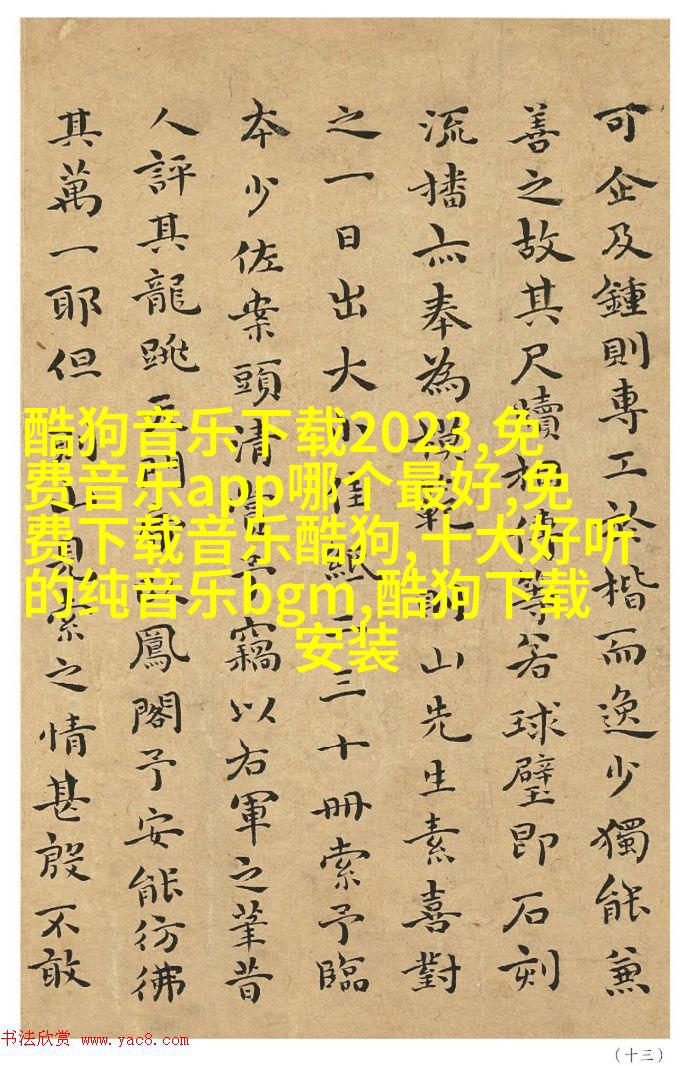 可企及鍾則專工於楷而逸少獨能兼
善之故其尺牘相傳等若球璧即石刻
流播亦奉為模範山先生素喜對
之一日出大小佳紙二三十冊索予臨
本少佐案頭清賞予竊以右軍之筆昔
人評其龍跳天門虎臥鳳閣予安能彷彿
其萬一耶但索之情甚殷不敢
酷狗音乐下载2023,免
费音乐app哪个最好,免
费下载音乐酷狗,十大好听
的纯音乐bgm,酷狗下载
安装
书法欣赏 www.yac8.com
（十三）